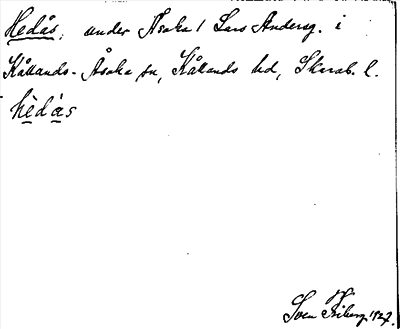 Hedås, under Åsaka 1 Lars Andersg. i
Kållands-Åsaka sn, Kållands hd, Skarab. l.
hèdås
Sven Friberg 1927.